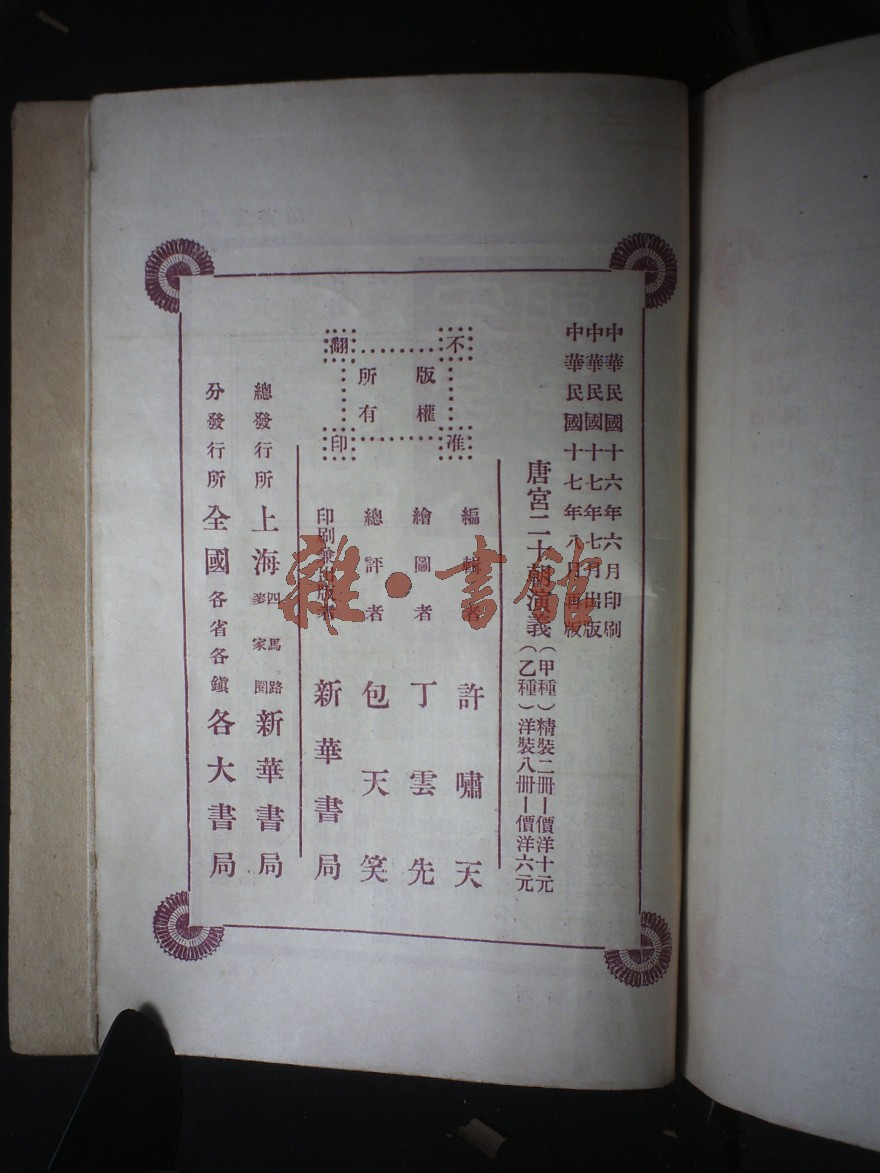 中華民國十六年六月印刷
中華民國十七年七月出版
中華民國十七年八月再版
唐宮二十朝演義
（甲種）精裝二冊—價洋十元
（乙種）洋裝八冊—價洋六元
不准
翻印
版權
所有
編輯者 許嘯天
繪圖者 丁雲先
總評者 包天笑
印刷兼出版者 新華書局
總發行所 上海四馬路麥家圈新華書局
分發行所 全國各省各鎮各大書局
雜·書館